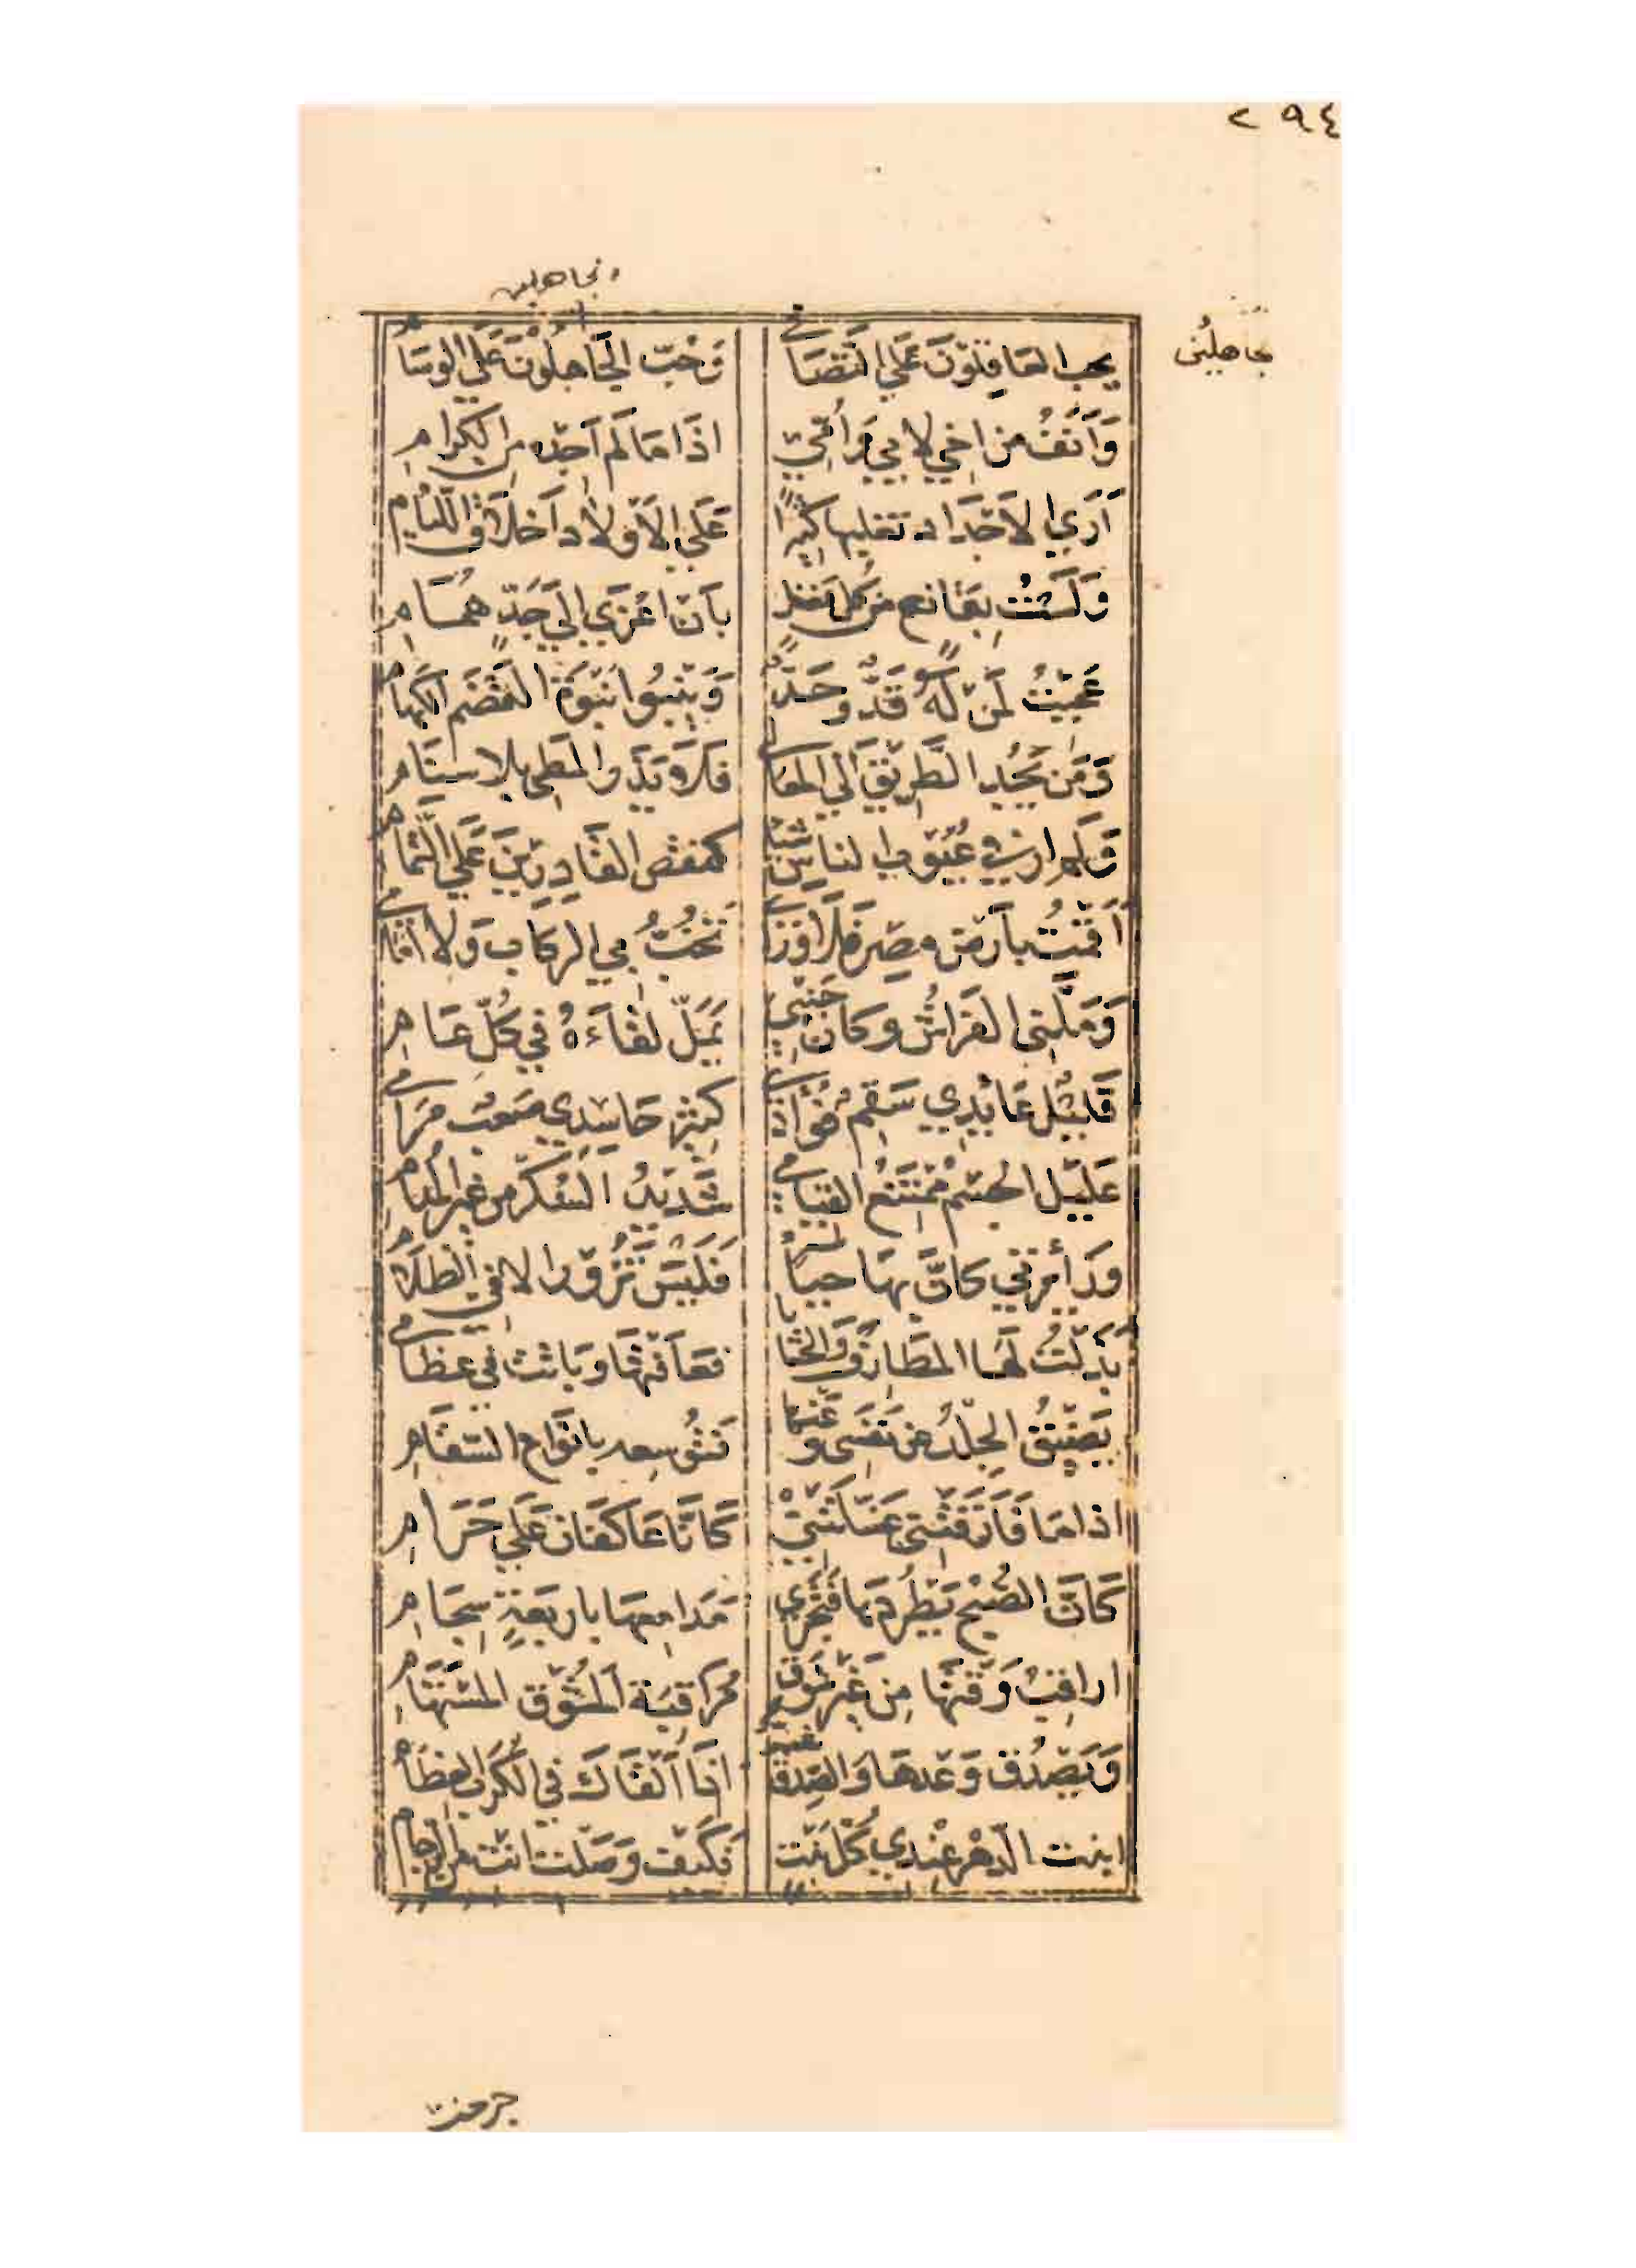 ٢٩٤
الجاهلين
جاهلين
يحب العاقلون على التصافي وحب الجاهلون على الوسام
وآنف من اخي لابي وامي اذا ما لم اجده من الكرام
أرى الاجداد تغلبها كثيرا على الاولاد اخلاق اللئام
ولست بقانع من كل فضل بان اعزى الى جد همام
عجبت لمن له قد وحد وينبو نبوة القضم الكهام
ومن يجد الطريق الى المعالي فلا يذر المطي بلا سنام
ولم ار في عيوب الناس شيئا كنقص القادرين على التمام
أقمت بارض مصر فلا ورائي تخب بي الركاب ولا امامي
وملني الفراش وكان جنبي يمل لقاءه في كل عام
قليل عايدي سقم فؤادي كثير حاسدي صعب مرامي
عليل الجسم ممتنع القيام شديد السكر من غير المدام
وزائرتي كان بها حياء فليس تزور الا في الظلام
بذلت لها المطارف والحشايا فعافتها وباتت في عظامي
يضيق الجلد عن نفسي وعنها فتوسعه بانواع السقام
اذا ما فارقتني غسلتني كانا عاكفان على حرام
كان الصبح يطردها فتجري مدامعها باربعة سجام
اراقب وقتها من غير شوق مراقبة المشوق المستهام
ويصدق وعدها والصدق شر اذا القاك في الكرب العظام
ابنت الدهر عندي كل بنت فكيف وصلت انت من الزحام
جرحت